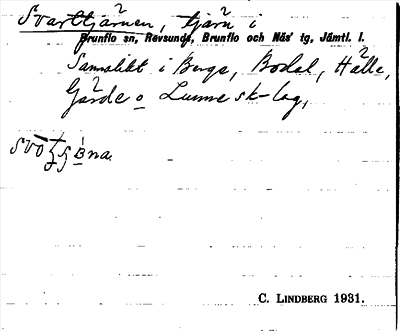 Svarttjärnen, tjärn i
Brunflo sn, Revsunds, Brunflo och Näs' tg, Jämtl. l.
Samfällt i Berge, Bodal, Hälle,
Gärde o Lunne sk-lag,
C. LINDBERG 1931.